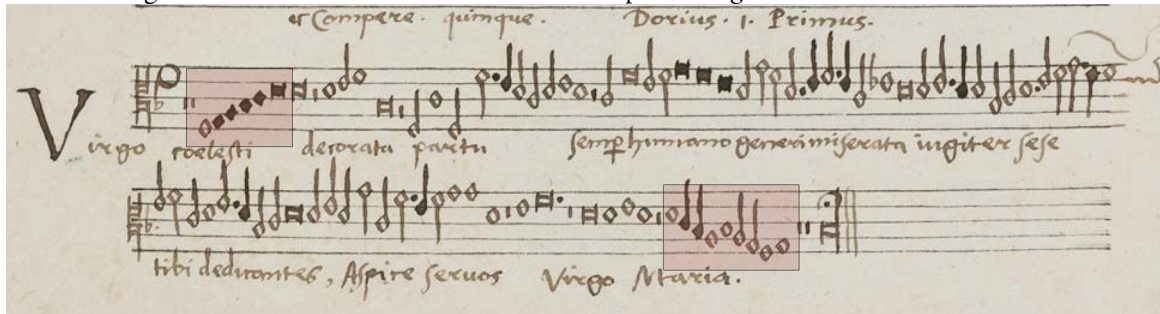 er Compere. quinque. Dorius. 1. Primus.
Virgo coelesti decorata partu semp humano generi miserata iugiter sese
tibi dedicantes, Aspice servos Virgo Maria.